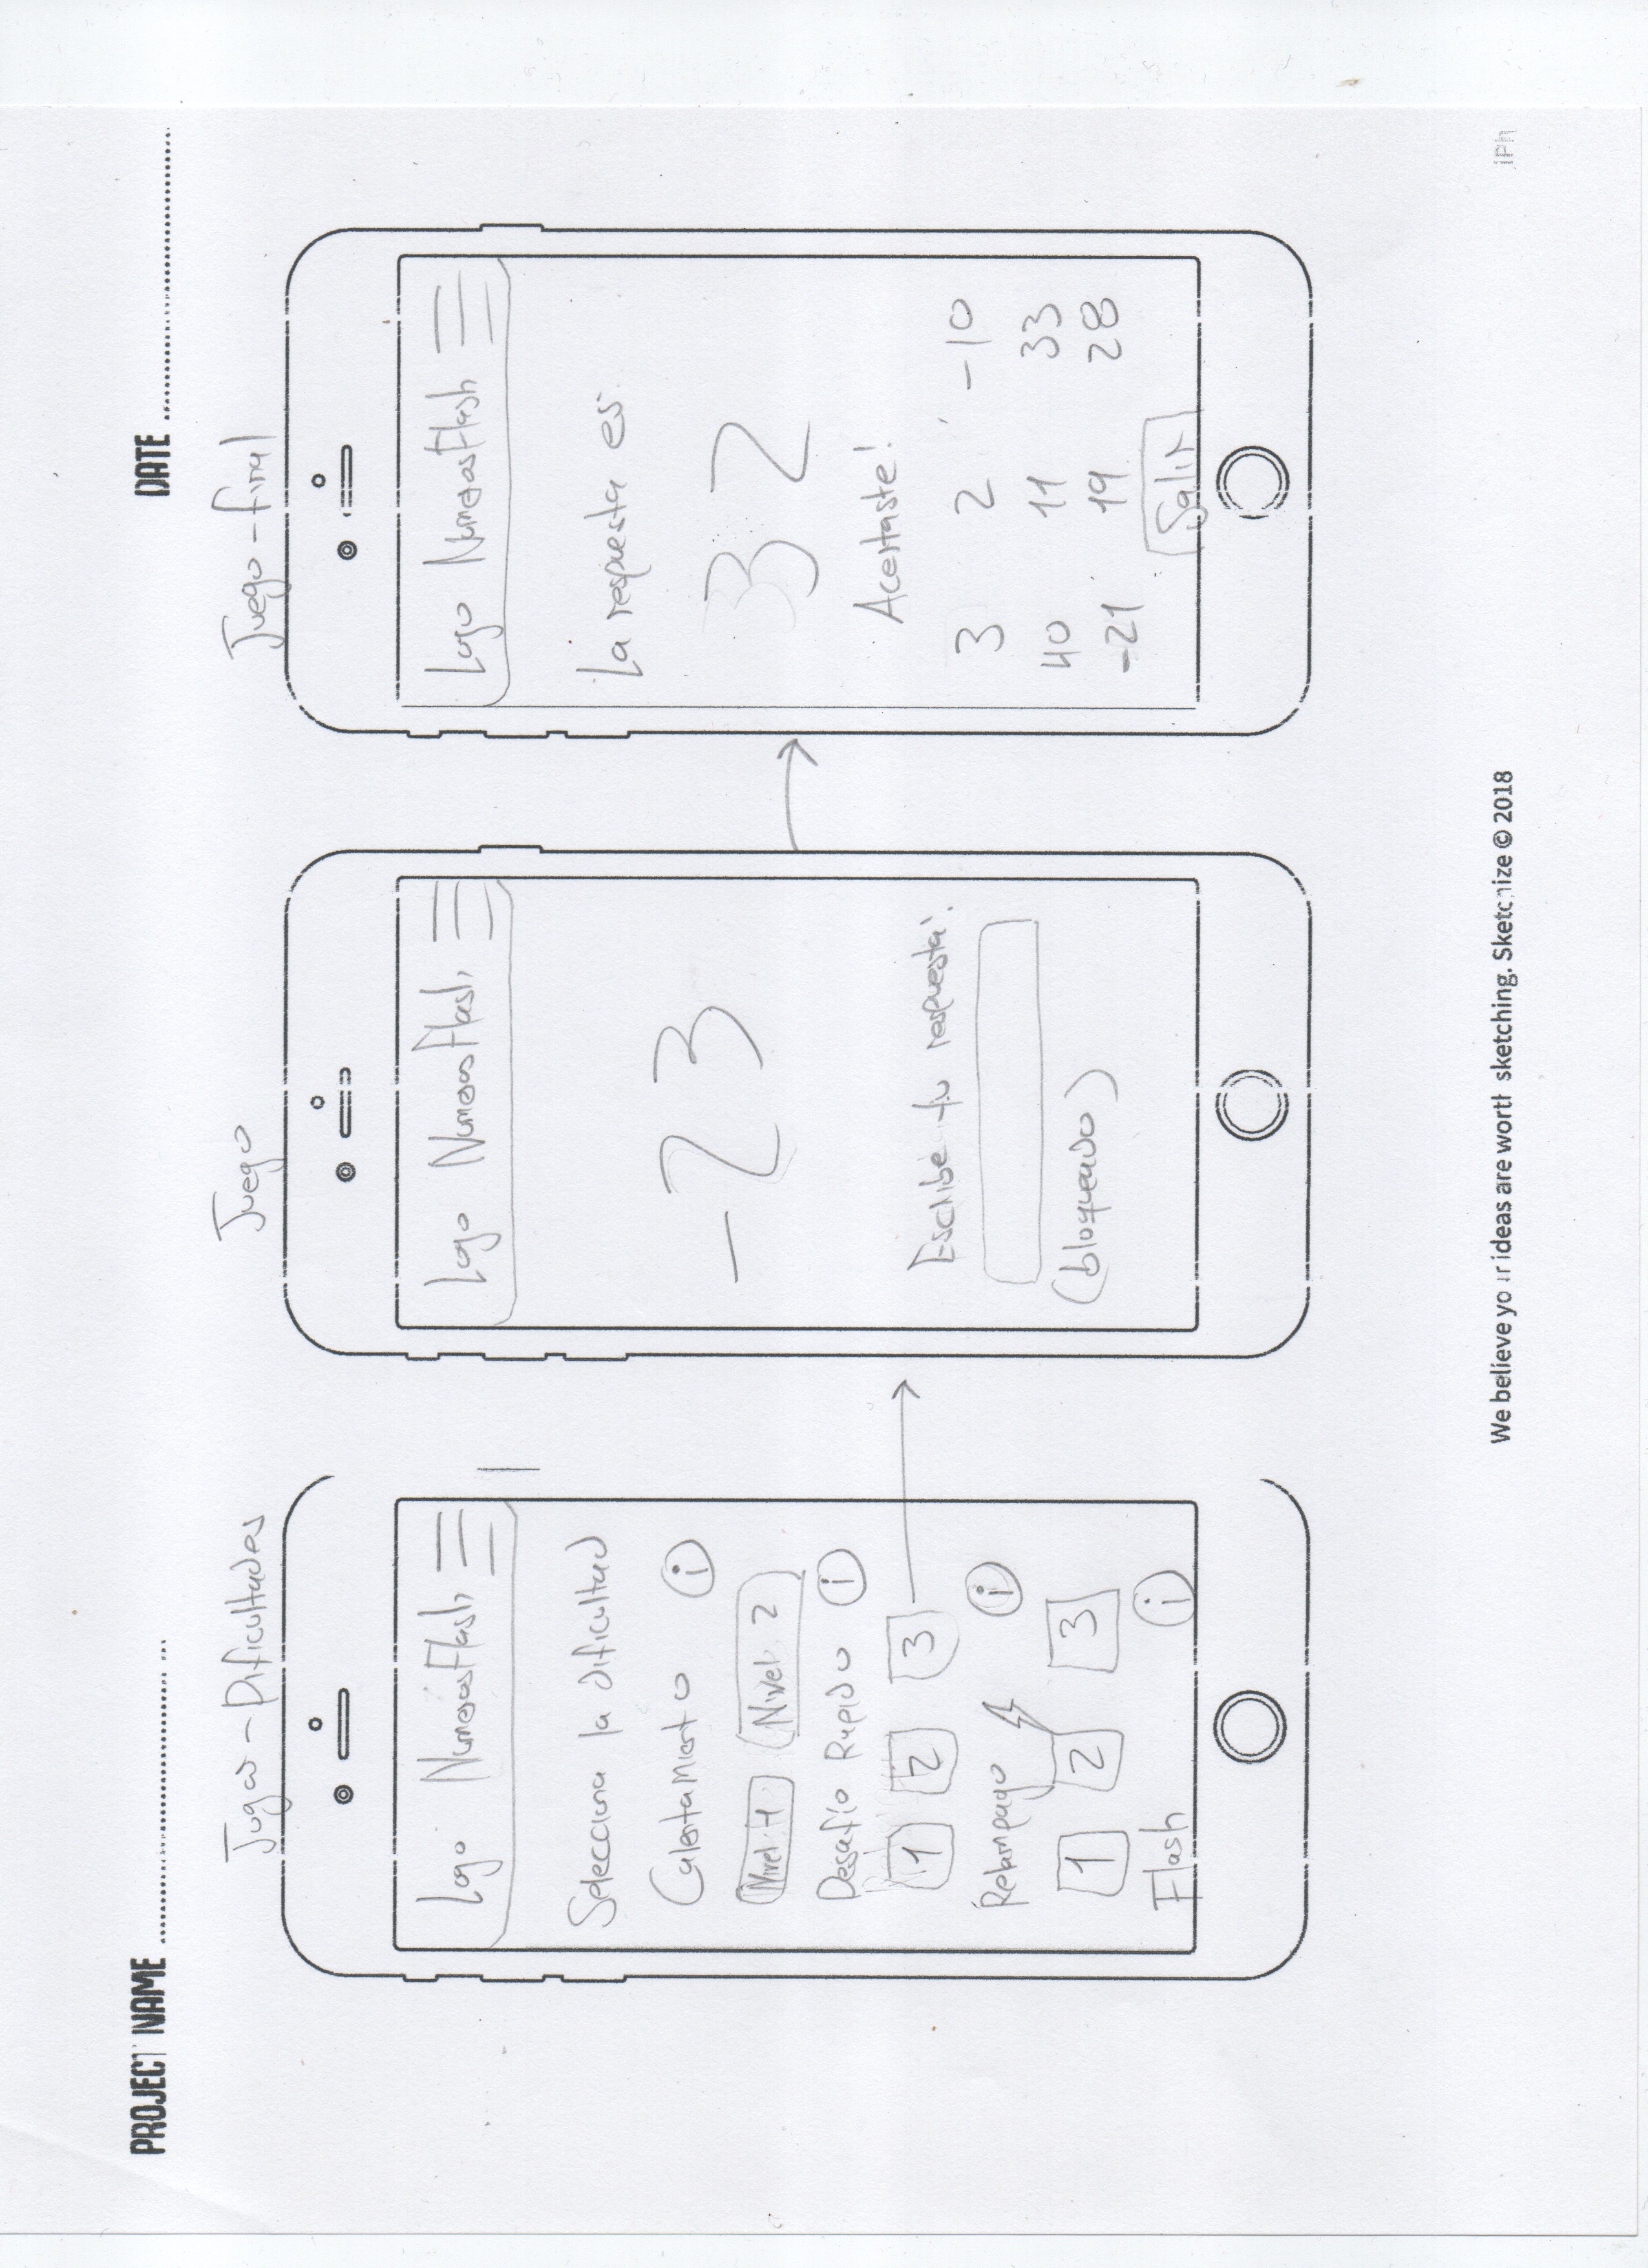 PROJECT NAME
DATE
Jugar - Dificultades
Logo NumerosFlash
Selecciona la dificultad
Calentamiento i
Nivel 1 Nivel 2
Desafío Rapido i
1 2 3
Relampago i
1 2 3
Flash i
Juego
Logo NumerosFlash
-23
Escribe tu respuesta!
(bloqueado)
Juego - final
Logo NumerosFlash
La respuesta es:
32
Acertaste!
3 2 -10
40 11 33
-21 19 28
Salir
We believe your ideas are worth sketching. Sketchize © 2018
iPh